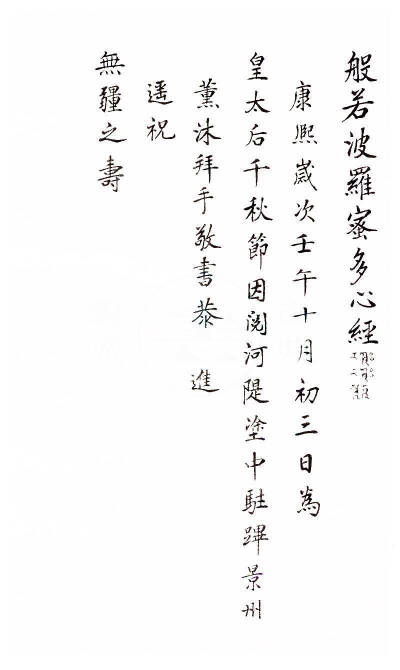 般若波羅蜜多心經
康熙歲次壬午十月初三日為
皇太后千秋節因閱河隄塗中駐蹕景州
薰沐拜手敬書恭 進
遥祝
無疆之壽